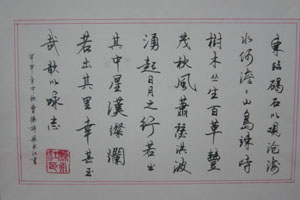 東臨碣石以觀滄海
水何澹々山島竦峙
樹木叢生百草豐
茂秋風蕭瑟洪波
湧起日月之行若出
其中星漢燦爛
若出其里幸甚至
哉歌以咏志